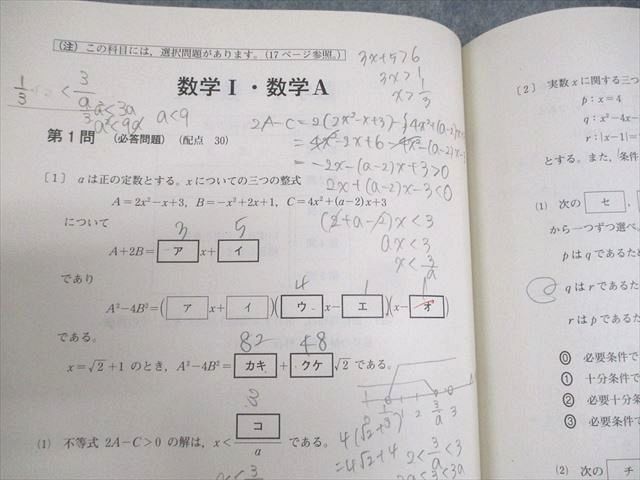 (注) この科目には，選択問題があります。(17ページ参照。)
数学Ⅰ・数学A
第1問 (必答問題) (配点 30)
〔1〕 aは正の定数とする。xについての三つの整式
A=2x²-x+3, B=-x²+2x+1, C=4x²+(a-2)x+3
について
3 5
A+2B= ア x+ イ
であり
4 1 1
A²-4B²=( ア x+ イ )( ウ x- エ )(x- オ )
である。
82 48
x=√2+1 のとき，A²-4B²= カキ + クケ √2 である。
3
(1) 不等式 2A-C>0 の解は，x< コ/a である。
1/3
a<9
3x+5>6
3x>1
x>1/3
=-2x-(a-2)x+3>0
2x+(a-2)x-3<0
(2+a-2)x<3
ax<3
x<3/a
4(√2+3)
=4√2+4
2<3/a<3
〔2〕 実数xに関する三つ
p:x=4
q:x²-4x-
r:|x-1|=
とする。また，条件
(1) 次の セ ，
から一つずつ選べ。
pはqであるため
qはrであるた
rはpであるため
⓪ 必要条件で
① 十分条件で
② 必要十分条
③ 必要条件で
(2) 次の チ